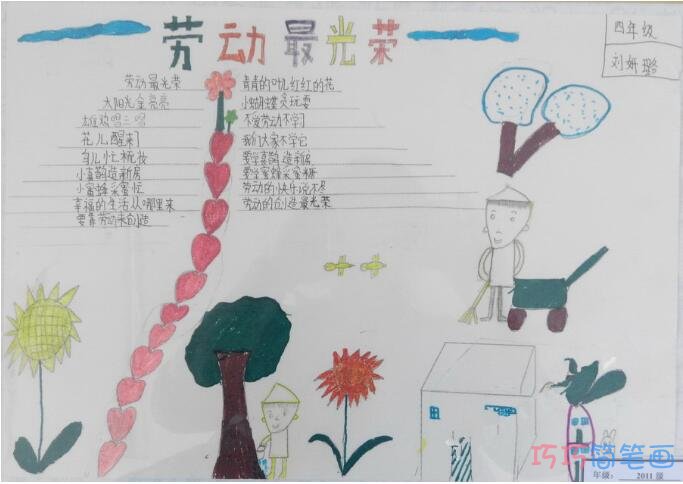 劳动最光荣
四年级
刘妍璐
劳动最光荣
太阳光金亮亮
雄鸡唱三唱
花儿醒来了
鸟儿忙梳妆
小喜鹊造新房
小蜜蜂采蜜忙
幸福的生活从哪里来
要靠劳动来创造
青青的叶儿红红的花
小蝴蝶贪玩耍
不爱劳动不学习
我们大家不学它
要学喜鹊造新房
要学蜜蜂采蜜糖
劳动的快乐说不尽
劳动的创造最光荣
巧巧简笔画
年级：
2011级